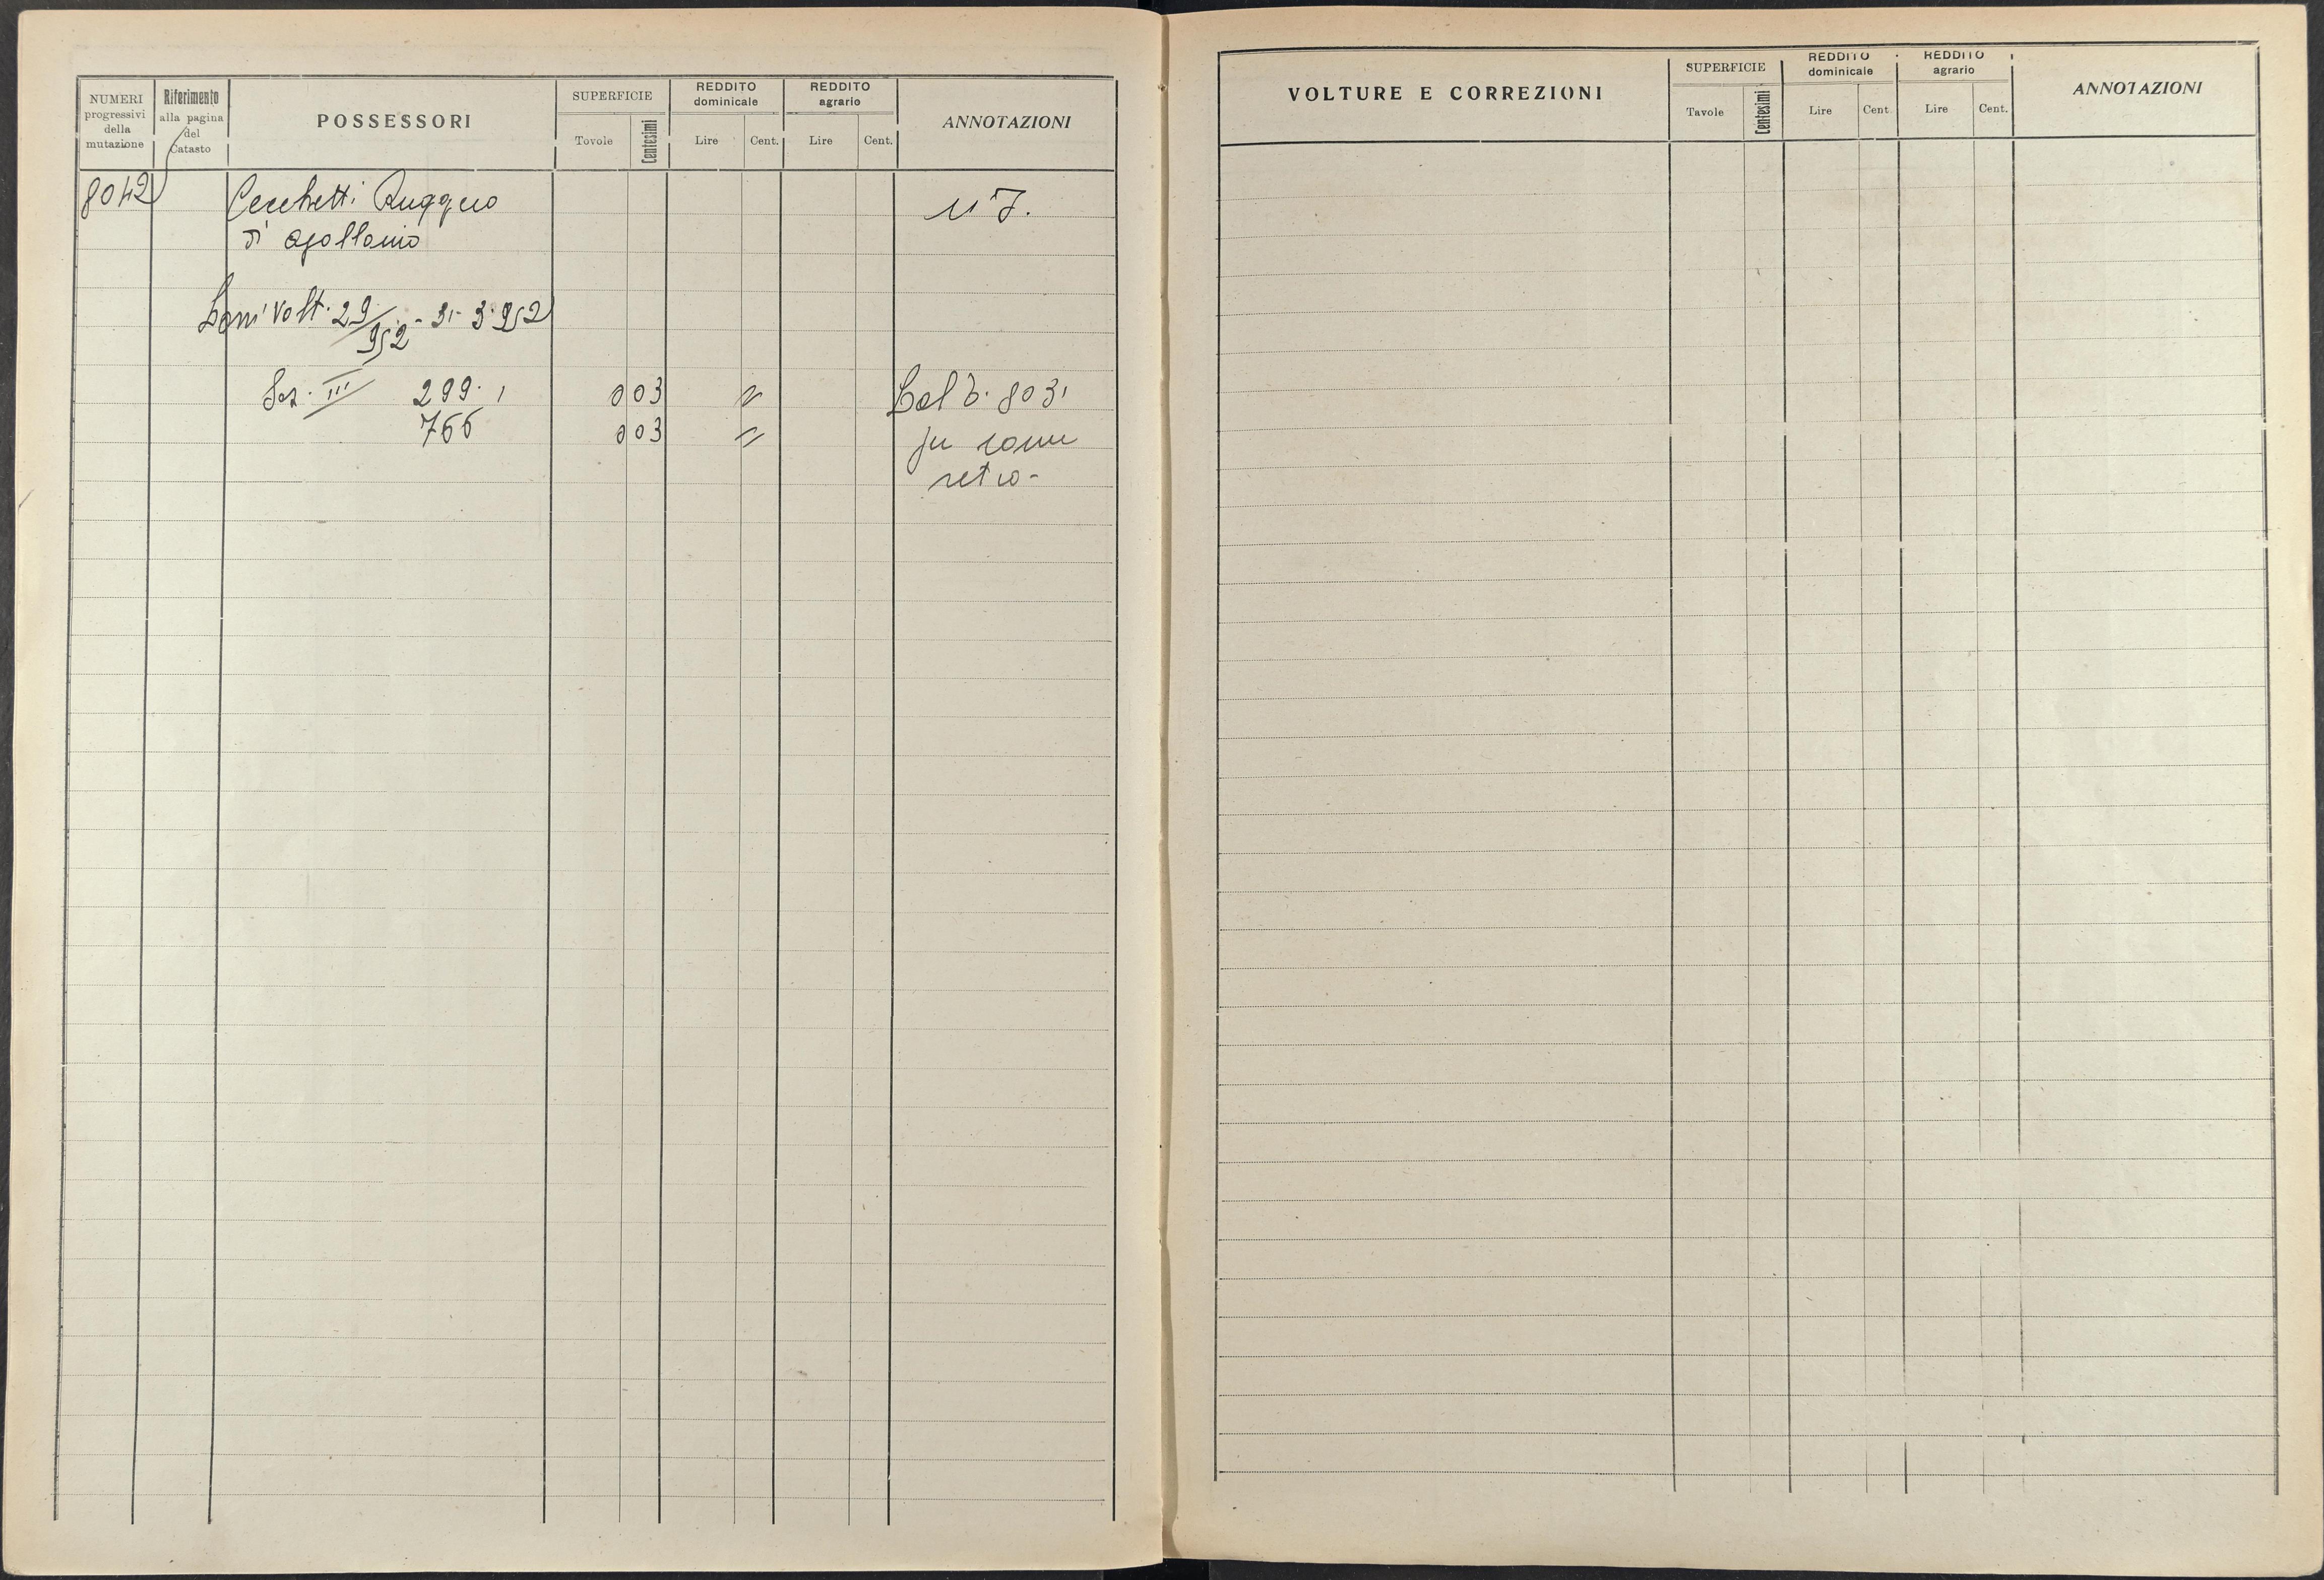 NUMERI progressivi della mutazione
Riferimento alla pagina del Catasto
POSSESSORI
SUPERFICIE
Tovole
Centesimi
REDDITO dominicale
Lire
Cent.
REDDITO agrario
Lire
Cent.
ANNOTAZIONI
8042
Cecchetti Ruggero
N 7.
di Apollonio
Volt. 29/952 - 31-3-952
Sez. III 299.1 003 "
766 003 "
Dal 8031
per come
retro-
VOLTURE E CORREZIONI
SUPERFICIE
Tavole
Centesimi
REDDITO dominicale
Lire
Cent
REDDITO agrario
Lire
Cent.
ANNOTAZIONI